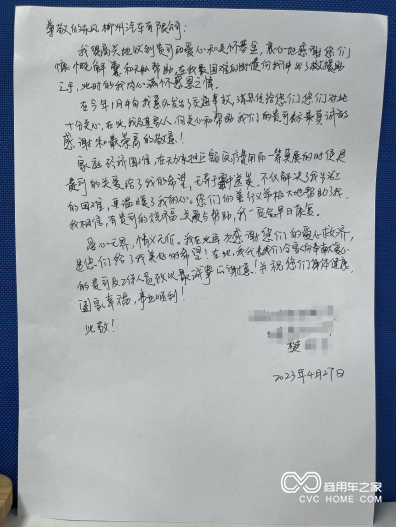 尊敬的东风柳州汽车有限公司:
我很高兴地收到贵司的爱心和关怀基金,衷心地感谢你们
慷慨解囊和无私帮助,在我最困难的时候向我伸出了救援
之手,此时的我内心满怀感恩之情。
在今年1月中旬我意外发生了交通事故,消息传给你们,你们对此
十分关心。在此,我及其家人,向关心和帮助我们的贵司表最真诚的
感谢和最崇高的敬意!
家庭经济困难,在无力承担巨额医疗费用而一筹莫展的时候是
贵司的关爱给了我的希望,无异于雪中送炭。不仅解决了我生活上
的困难,更温暖了我的心。你们的善行义举极大地帮助了我。
我相信,有贵司的祝福、关爱与帮助,我一定能早日康复。
爱心无界,情义无价。我在此再次感谢你们的爱心救济,
是你们给了我美好的希望!在此,我代表我们全家向奉献爱心
的贵司及工作人员致以最诚挚的谢意!并祝你们身体健康,
阖家幸福,事业顺利!
此致!
樊
2023年4月27日
商用车之家
CVC HOME.COM